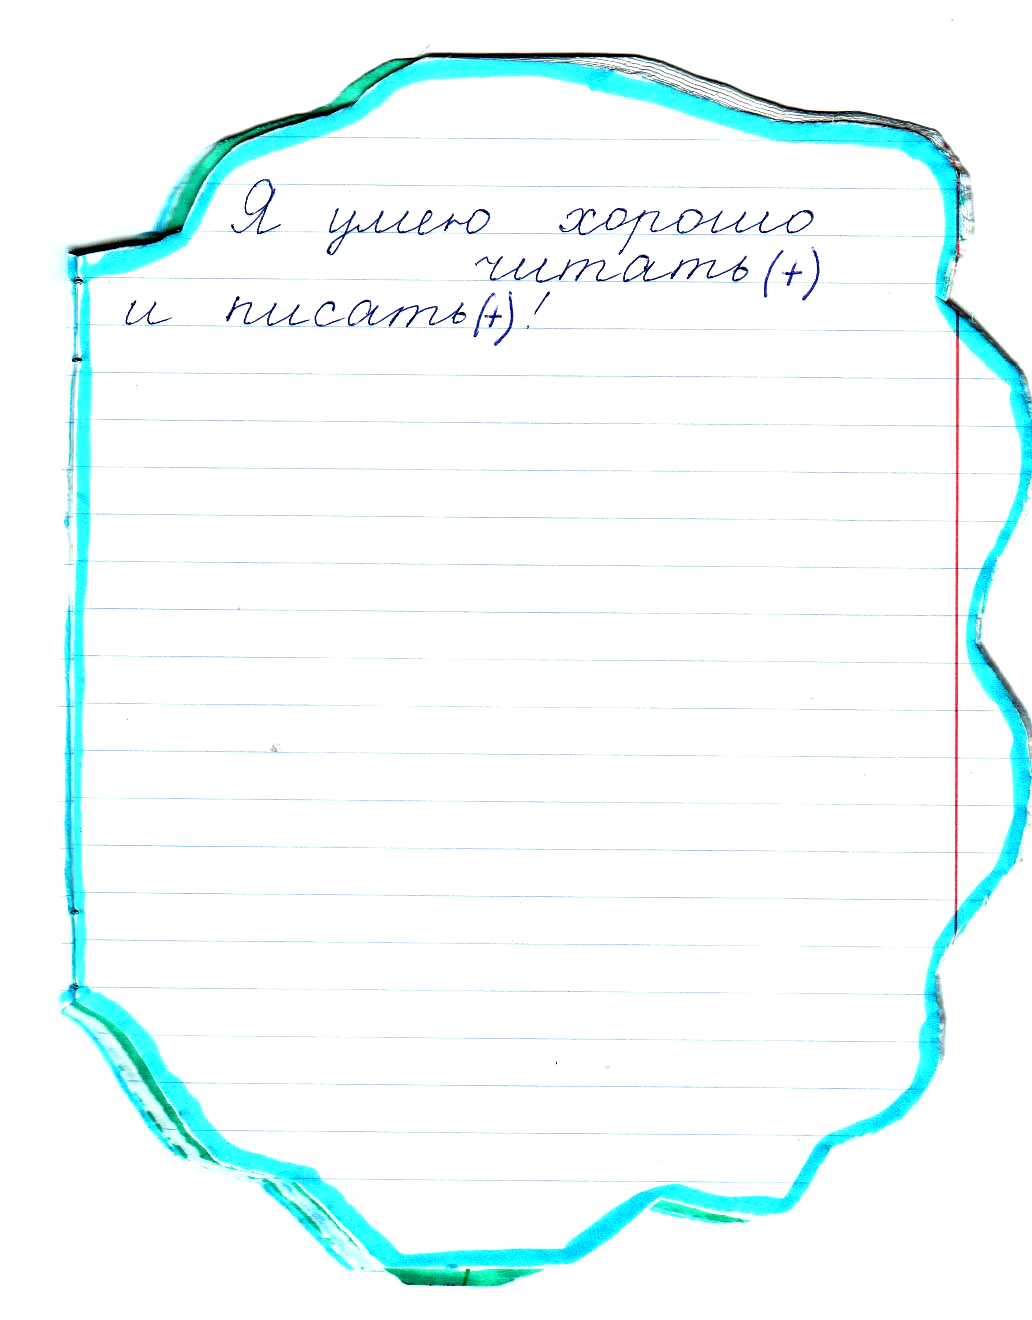 Я умею хорошо
читать(+)
и писать(+)!